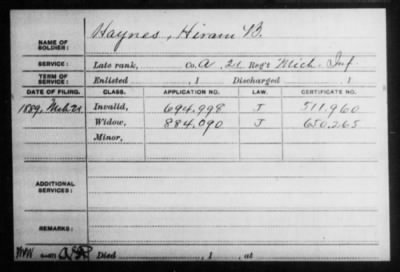 NAME OF SOLDIER: Haynes, Hiram B.
SERVICE: Late rank, Co. A, 21 Reg't Mich. Inf.
TERM OF SERVICE: Enlisted , 1 Discharged , 1
DATE OF FILING. CLASS. APPLICATION NO. LAW. CERTIFICATE NO.
1889, Mch. 21 Invalid, 694.998 J 511.960
Widow, 884.090 J 650.265
Minor,
ADDITIONAL SERVICES:
REMARKS:
Died , 1 , at